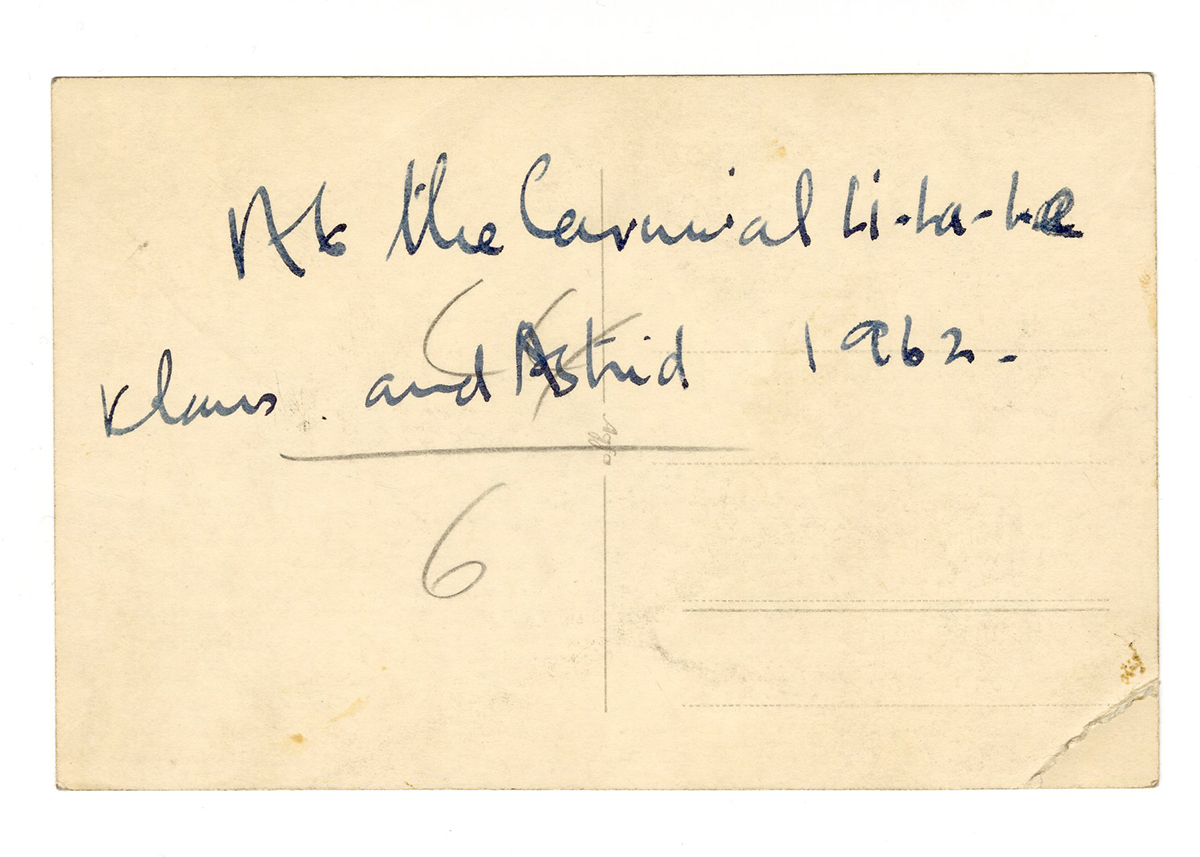 At the Carnival Li-La-Le
Klaus . and Astrid 1962 -
Agfa
6